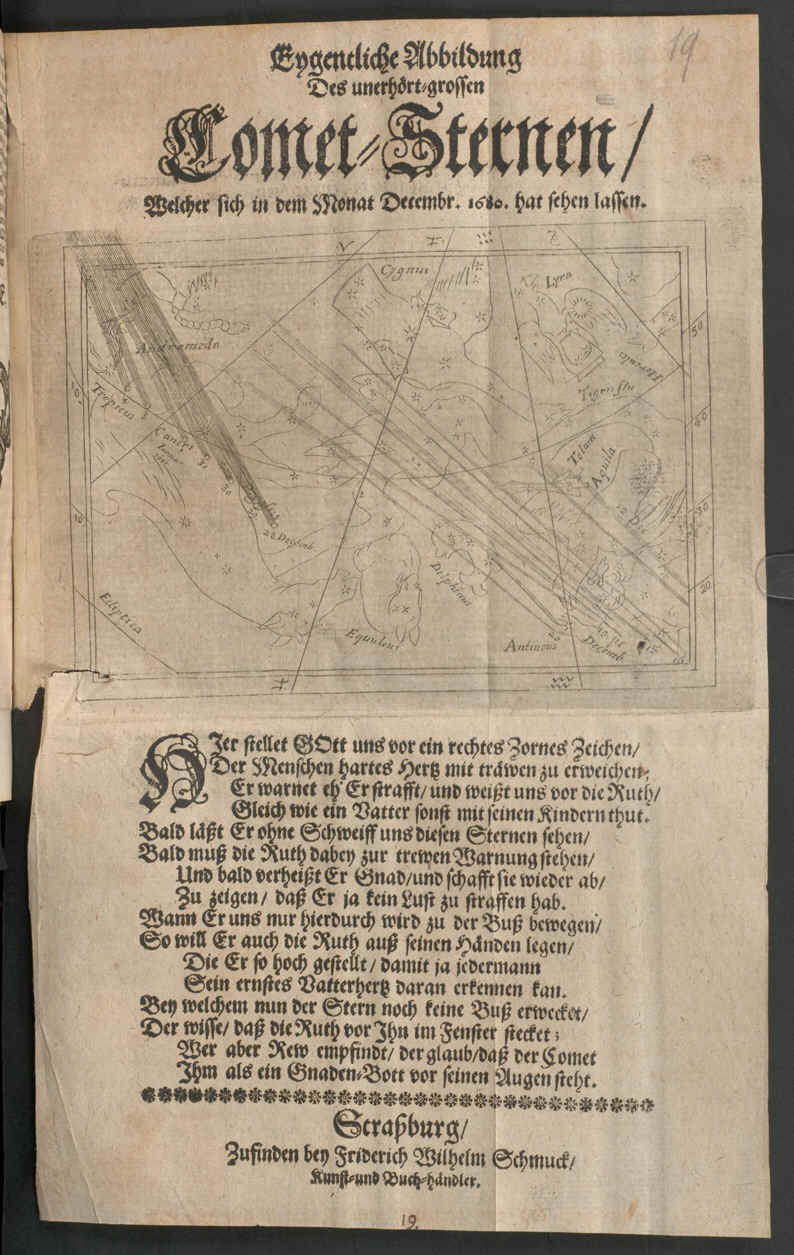 19
Eygentliche Abbildung
Des unerhört-grossen
Comet-Sternen/
Welcher sich in dem Monat Decembr. 1680. hat sehen lassen.
Cygnus
Lyra
Andromeda
Tropicus
Cancri
Telum
Aquila
50
40
30
20
22 Decemb
Delphinus
Ecliptica
Equuleus
Antinous
Decemb
HJer stellet GOtt uns vor ein rechtes Zornes Zeichen/
Der Menschen hartes Hertz mit träwen zu erweichen:
Er warnet eh' Er strafft/ und weißt uns vor die Ruth/
Gleich wie ein Vatter sonst mit seinen Kindern thut.
Bald läßt Er ohne Schweiff uns diesen Sternen sehen/
Bald muß die Ruth dabey zur trewen Warnung stehen/
Und bald verheißt Er Gnad/und schafft sie wieder ab/
Zu zeigen/ daß Er ja kein Lust zu straffen hab.
Wann Er uns nur hierdurch wird zu der Buß bewegen/
So will Er auch die Ruth auß seinen Händen legen/
Die Er so hoch gestellt/ damit ja jedermann
Sein ernstes Vatterhertz daran erkennen kan.
Bey welchem nun der Stern noch keine Buß erwecket/
Der wisse/ daß die Ruth vor Jhn im Fenster stecket;
Wer aber Rew empfindt/ der glaub/daß der Comet
Jhm als ein Gnaden-Bott vor seinen Augen steht.
Straßburg/
Zufinden bey Friderich Wilhelm Schmuck/
Kunst-und Buch-händler.
19.